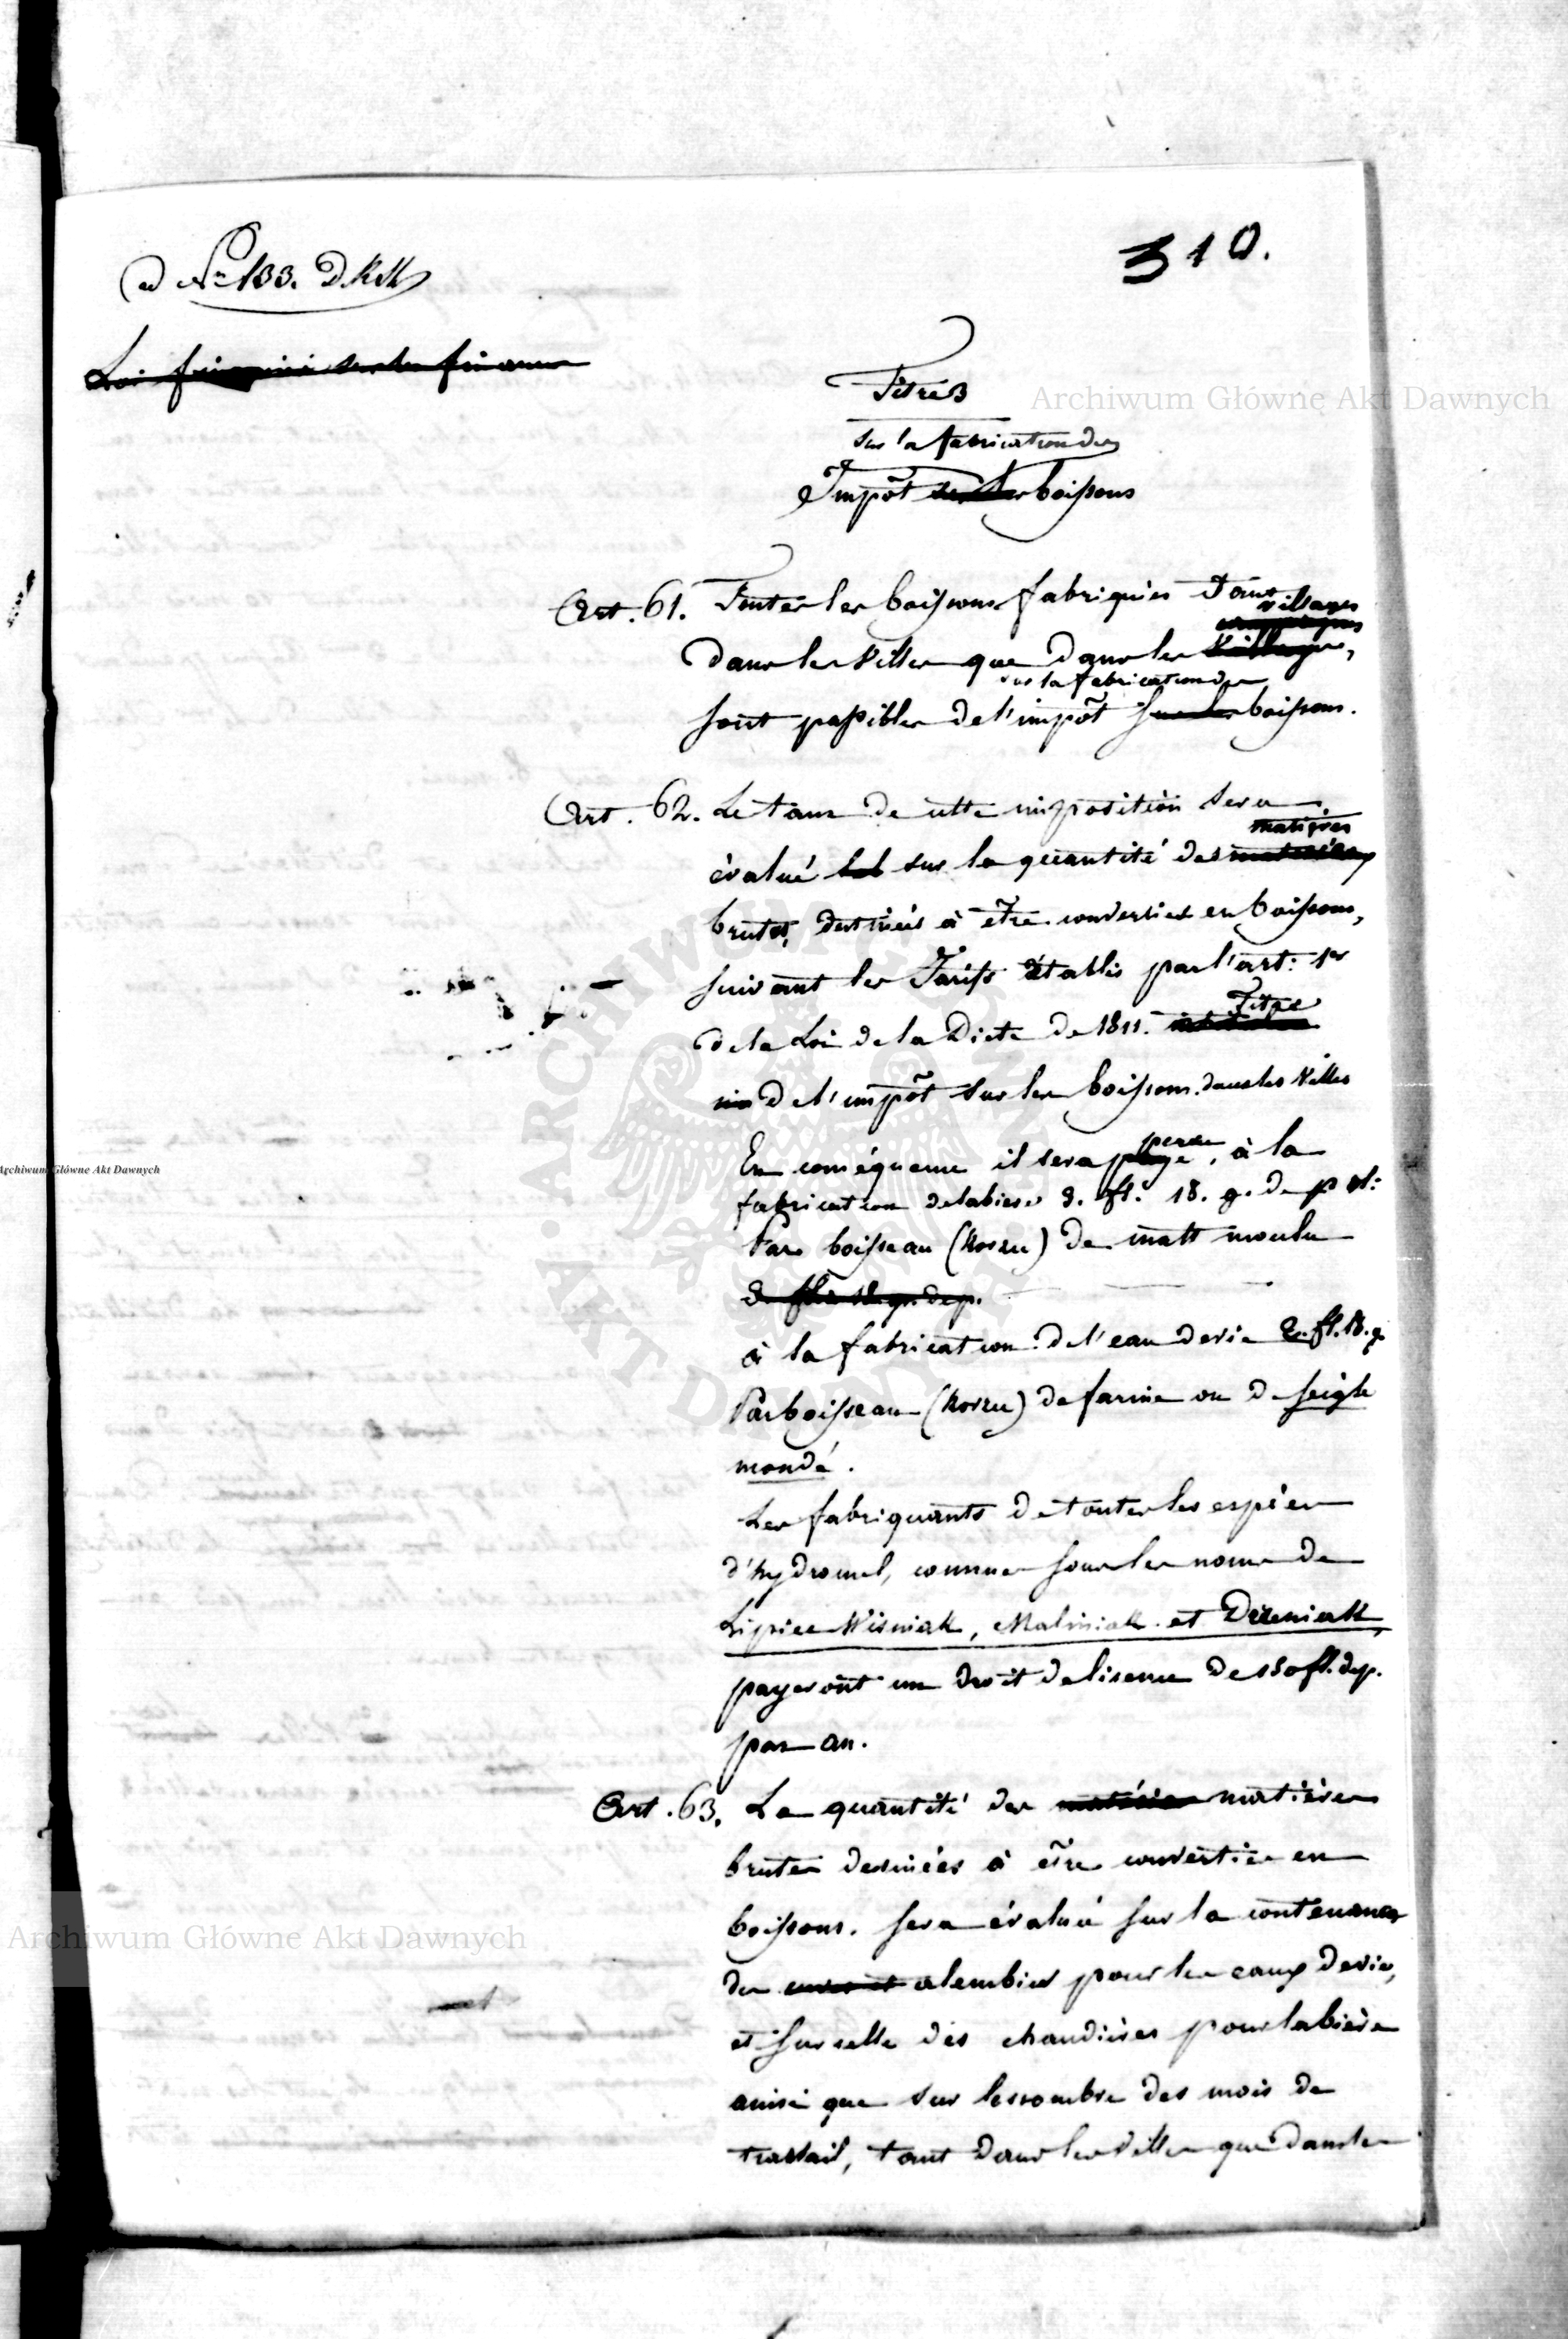 ad Nr 133. D.K.M.
310.
Titre 3
sur la fabrication des
Impôt boissons
Art. 61. Toutes les boissons fabriquées tant
villages
dans les Villes que dans les
sur la fabrication des
sont passibles de l'impôt boissons.
Art. 62. Le taux de cette imposition sera
matières
évalué sur la quantité des
brutes, destinées à être converties en boissons,
suivant les Tarifs établis par l'art: 1er
Titre
de la Loi de la Diete de 1811.
de l'impôt sur les boissons. dans les Villes
perçu
En conséquence il sera , à la
fabrication de la biere 3. fl. 18. g. de pol:
Par boisseau (korzec) de malt moulu
à la fabrication de l'eau de vie 2. fl. 18. g.
Par boisseau (korzec) de farine ou de seigle
mondé.
Les fabriquants de toutes les espèces
d'hydromel, connues sous les noms de
Lipiec Wisniak, Maliniak et Dereniak,
payeront un droit de lisence de 150 fl. de p.
par an.
Art. 63. La quantité des matières
brutes desinées à être convertie en
boissons. sera évalué sur la contenance
des alembics pour les eaux de vie,
et sur celle des chaudières pour la bière
ainsi que sur le nombre des mois de
travail, tant dans les Villes que dans les
Archiwum Główne Akt Dawnych
Archiwum Główne Akt Dawnych
Archiwum Główne Akt Dawnych
ARCHIWUM GŁÓWNE
AKT DAWNYCH